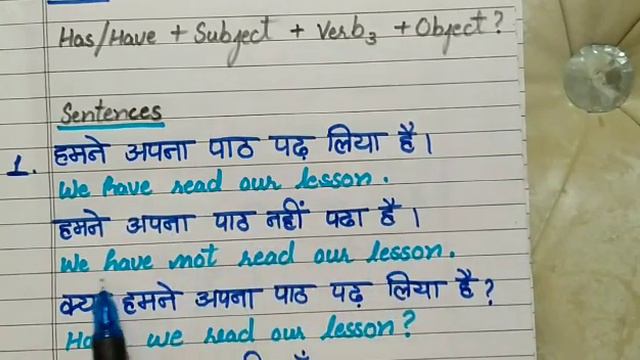 Has/Have + Subject + Verb₃ + Object?
Sentences
1. हमने अपना पाठ पढ़ लिया है।
We have read our lesson.
हमने अपना पाठ नहीं पढा है।
We have not read our lesson.
हमने अपना पाठ पढ़ लिया है?
we read our lesson?